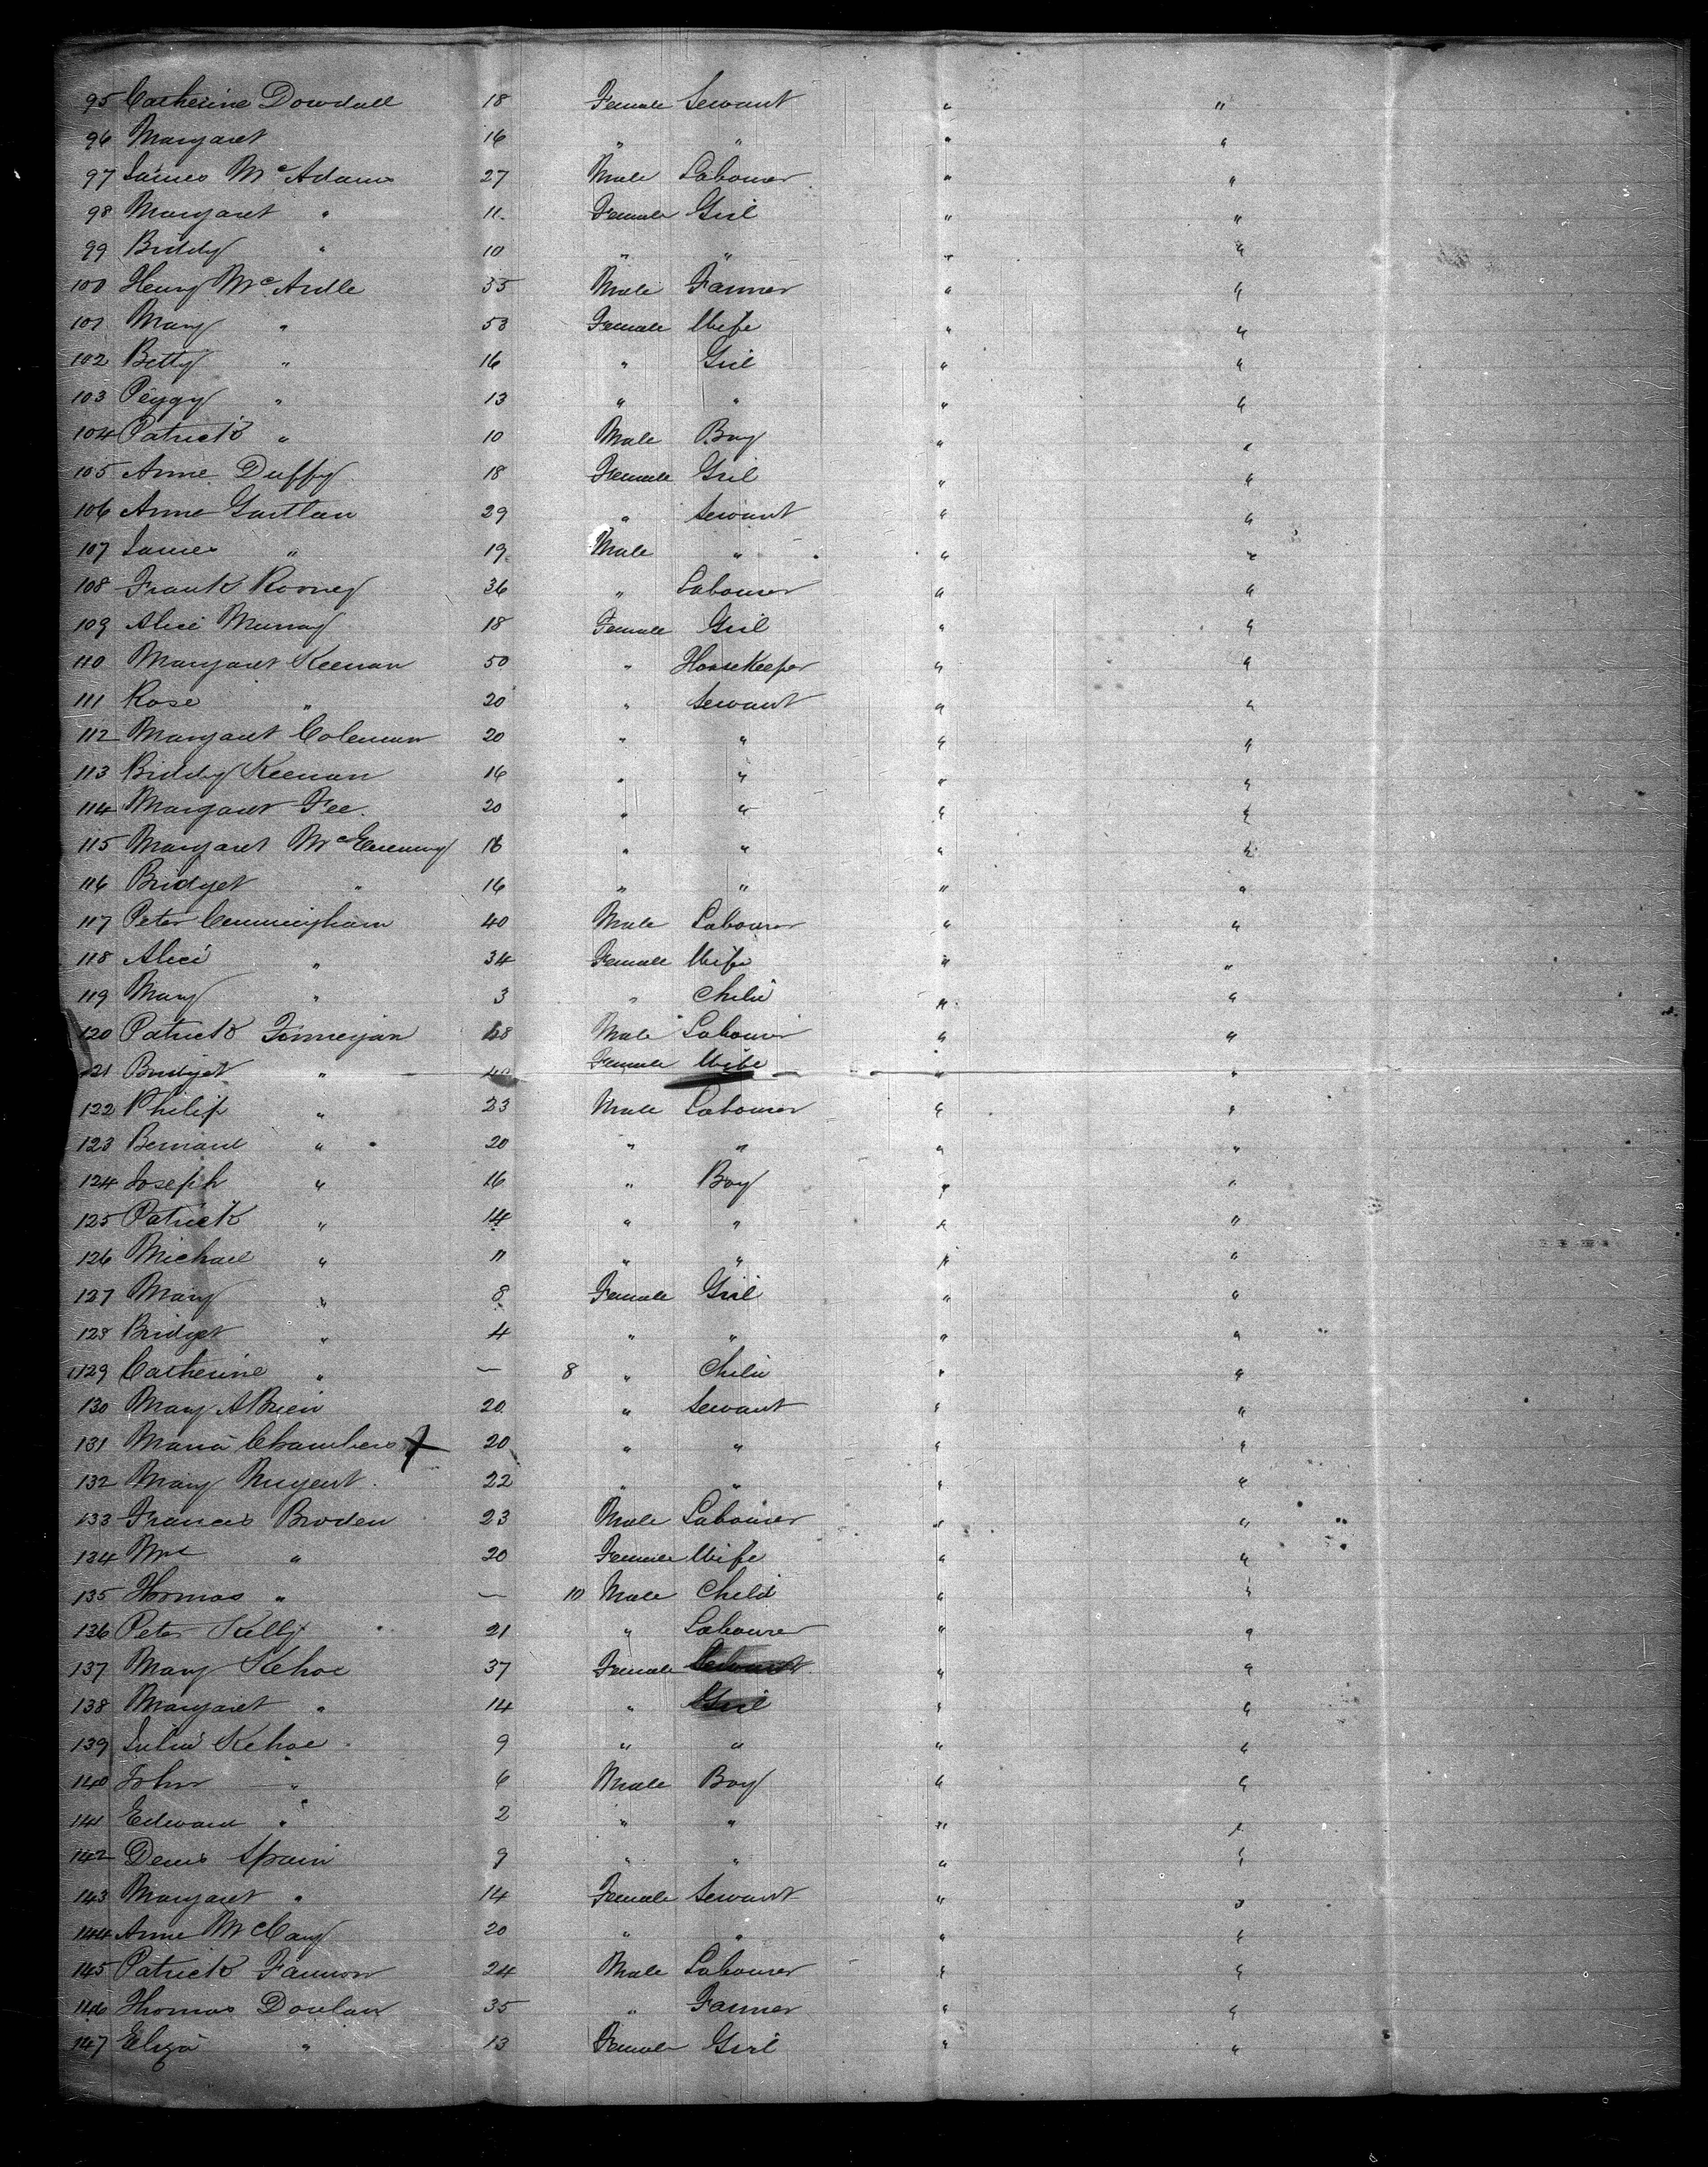 95 Catherine Dowdall 18 Female Servant " "
96 Margaret 16 " " " "
97 James McAdam 27 Male Labourer " "
98 Margaret " 11 Female Girl " "
99 Biddy " 10 " " " "
100 Henry McArdle 55 Male Farmer " "
101 Mary " 53 Female Wife " "
102 Betty " 16 " Girl " "
103 Peggy " 13 " " " "
104 Patrick " 10 Male Boy " "
105 Anne Duffy 18 Female Girl " "
106 Anne Gartlan 29 " Servant " "
107 James " 19 Male " " "
108 Frank Rooney 36 " Labourer " "
109 Alice Murray 18 Female Girl " "
110 Margaret Keenan 50 " HouseKeeper " "
111 Rose " 20 " Servant " "
112 Margaret Coleman 20 " " " "
113 Biddy Keenan 16 " " " "
114 Margaret Fee. 20 " " " "
115 Margaret McEneny 18 " " " "
116 Bridget " 16 " " " "
117 Peter Cunningham 40 Male Labourer " "
118 Alice " 34 Female Wife " "
119 Mary " 3 " Child " "
120 Patrick Finnegan 48 Male Labourer " "
121 Bridget " 40 Female Wife " "
122 Philip " 23 Male Labourer " "
123 Bernard " 20 " " " "
124 Joseph " 16 " Boy " "
125 Patrick " 14 " " " "
126 Michael " 11 " " " "
127 Mary " 8 Female Girl " "
128 Bridget " 4 " " " "
129 Catherine " — 8 " Child " "
130 Mary ABrien 20 " Servant " "
131 Maria Chambers X 20 " " " "
132 Mary Nugent 22 " " " "
133 Francis Broden 23 Male Labourer " "
134 Mrs " 20 Female Wife " "
135 Thomas " — 10 Male Child " "
136 Peter Kelly 21 " Labourer " "
137 Mary Kehoe 37 Female Servant " "
138 Margaret " 14 " Girl " "
139 Julia Kehoe 9 " " " "
140 John " 6 Male Boy " "
141 Edward " 2 " " " "
142 Denis Spain 9 " " " "
143 Margaret " 14 Female Servant " "
144 Anne McCary 20 " " " "
145 Patrick Fannon 24 Male Labourer " "
146 Thomas Donlan 35 " Farmer " "
147 Eliza " 13 Female Girl " "